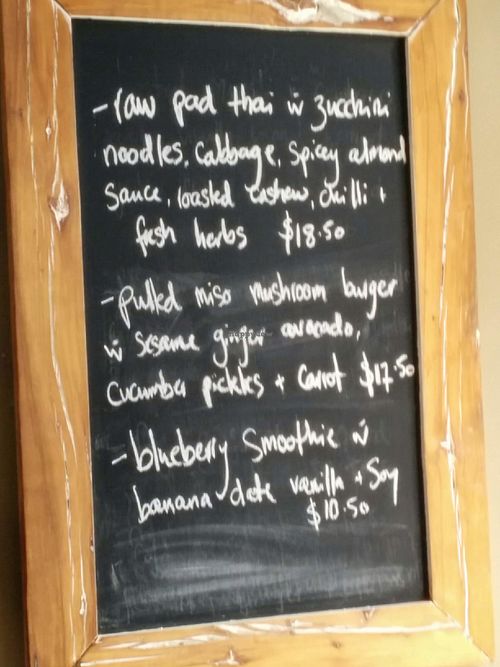 - raw pad thai w zucchini
noodles, cabbage, spicey almond
sauce, roasted cashew, chilli +
fresh herbs $18.50
- pulled miso mushroom burger
w sesame ginger avocado,
cucumber pickles + carrot $17.50
- blueberry smoothie w
banana date vanilla + soy
$10.50